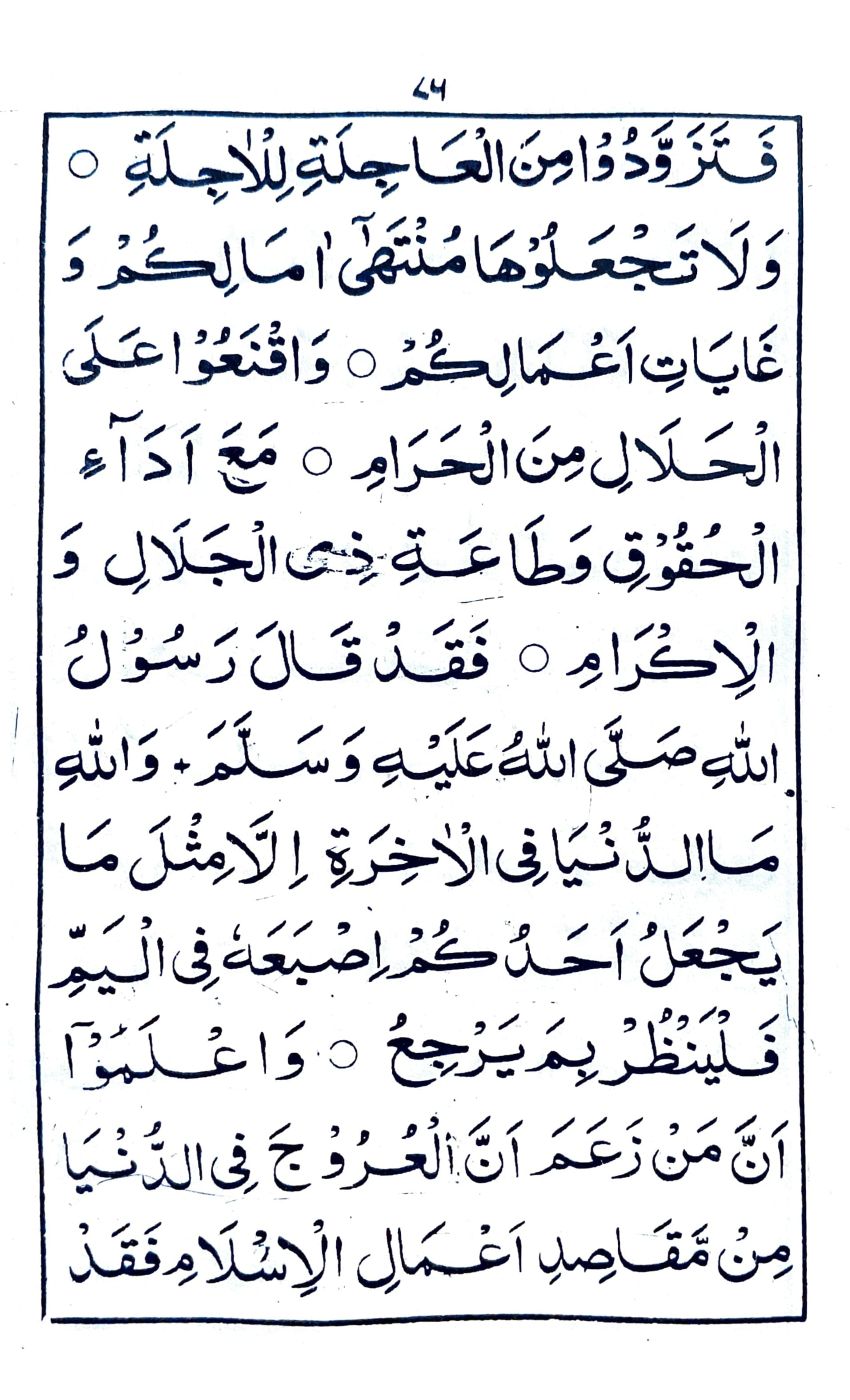 فَتَزَوَّدُوْا مِنَ الْعَاجِلَةِ لِلْاٰجِلَةِ ○
وَلَا تَجْعَلُوْهَا مُنْتَهٰٓى اٰمَالِكُمْ وَ
غَايَاتِ اَعْمَالِكُمْ ○ وَاقْنَعُوْا عَلَى
الْحَلَالِ مِنَ الْحَرَامِ ○ مَعَ اَدَآءِ
الْحُقُوْقِ وَطَاعَةِ ذِى الْجَلَالِ وَ
الْاِكْرَامِ ○ فَقَدْ قَالَ رَسُوْلُ
اللّٰهِ صَلَّى اللّٰهُ عَلَيْهِ وَسَلَّمَ + وَاللّٰهِ
مَا الدُّنْيَا فِى الْاٰخِرَةِ اِلَّا مِثْلَ مَا
يَجْعَلُ اَحَدُكُمْ اِصْبَعَهٗ فِى الْيَمِّ
فَلْيَنْظُرْ بِمَ يَرْجِعُ ○ وَاعْلَمُوْٓا
اَنَّ مَنْ زَعَمَ اَنَّ الْعُرُوْجَ فِى الدُّنْيَا
مِنْ مَّقَاصِدِ اَعْمَالِ الْاِسْلَامِ فَقَدْ